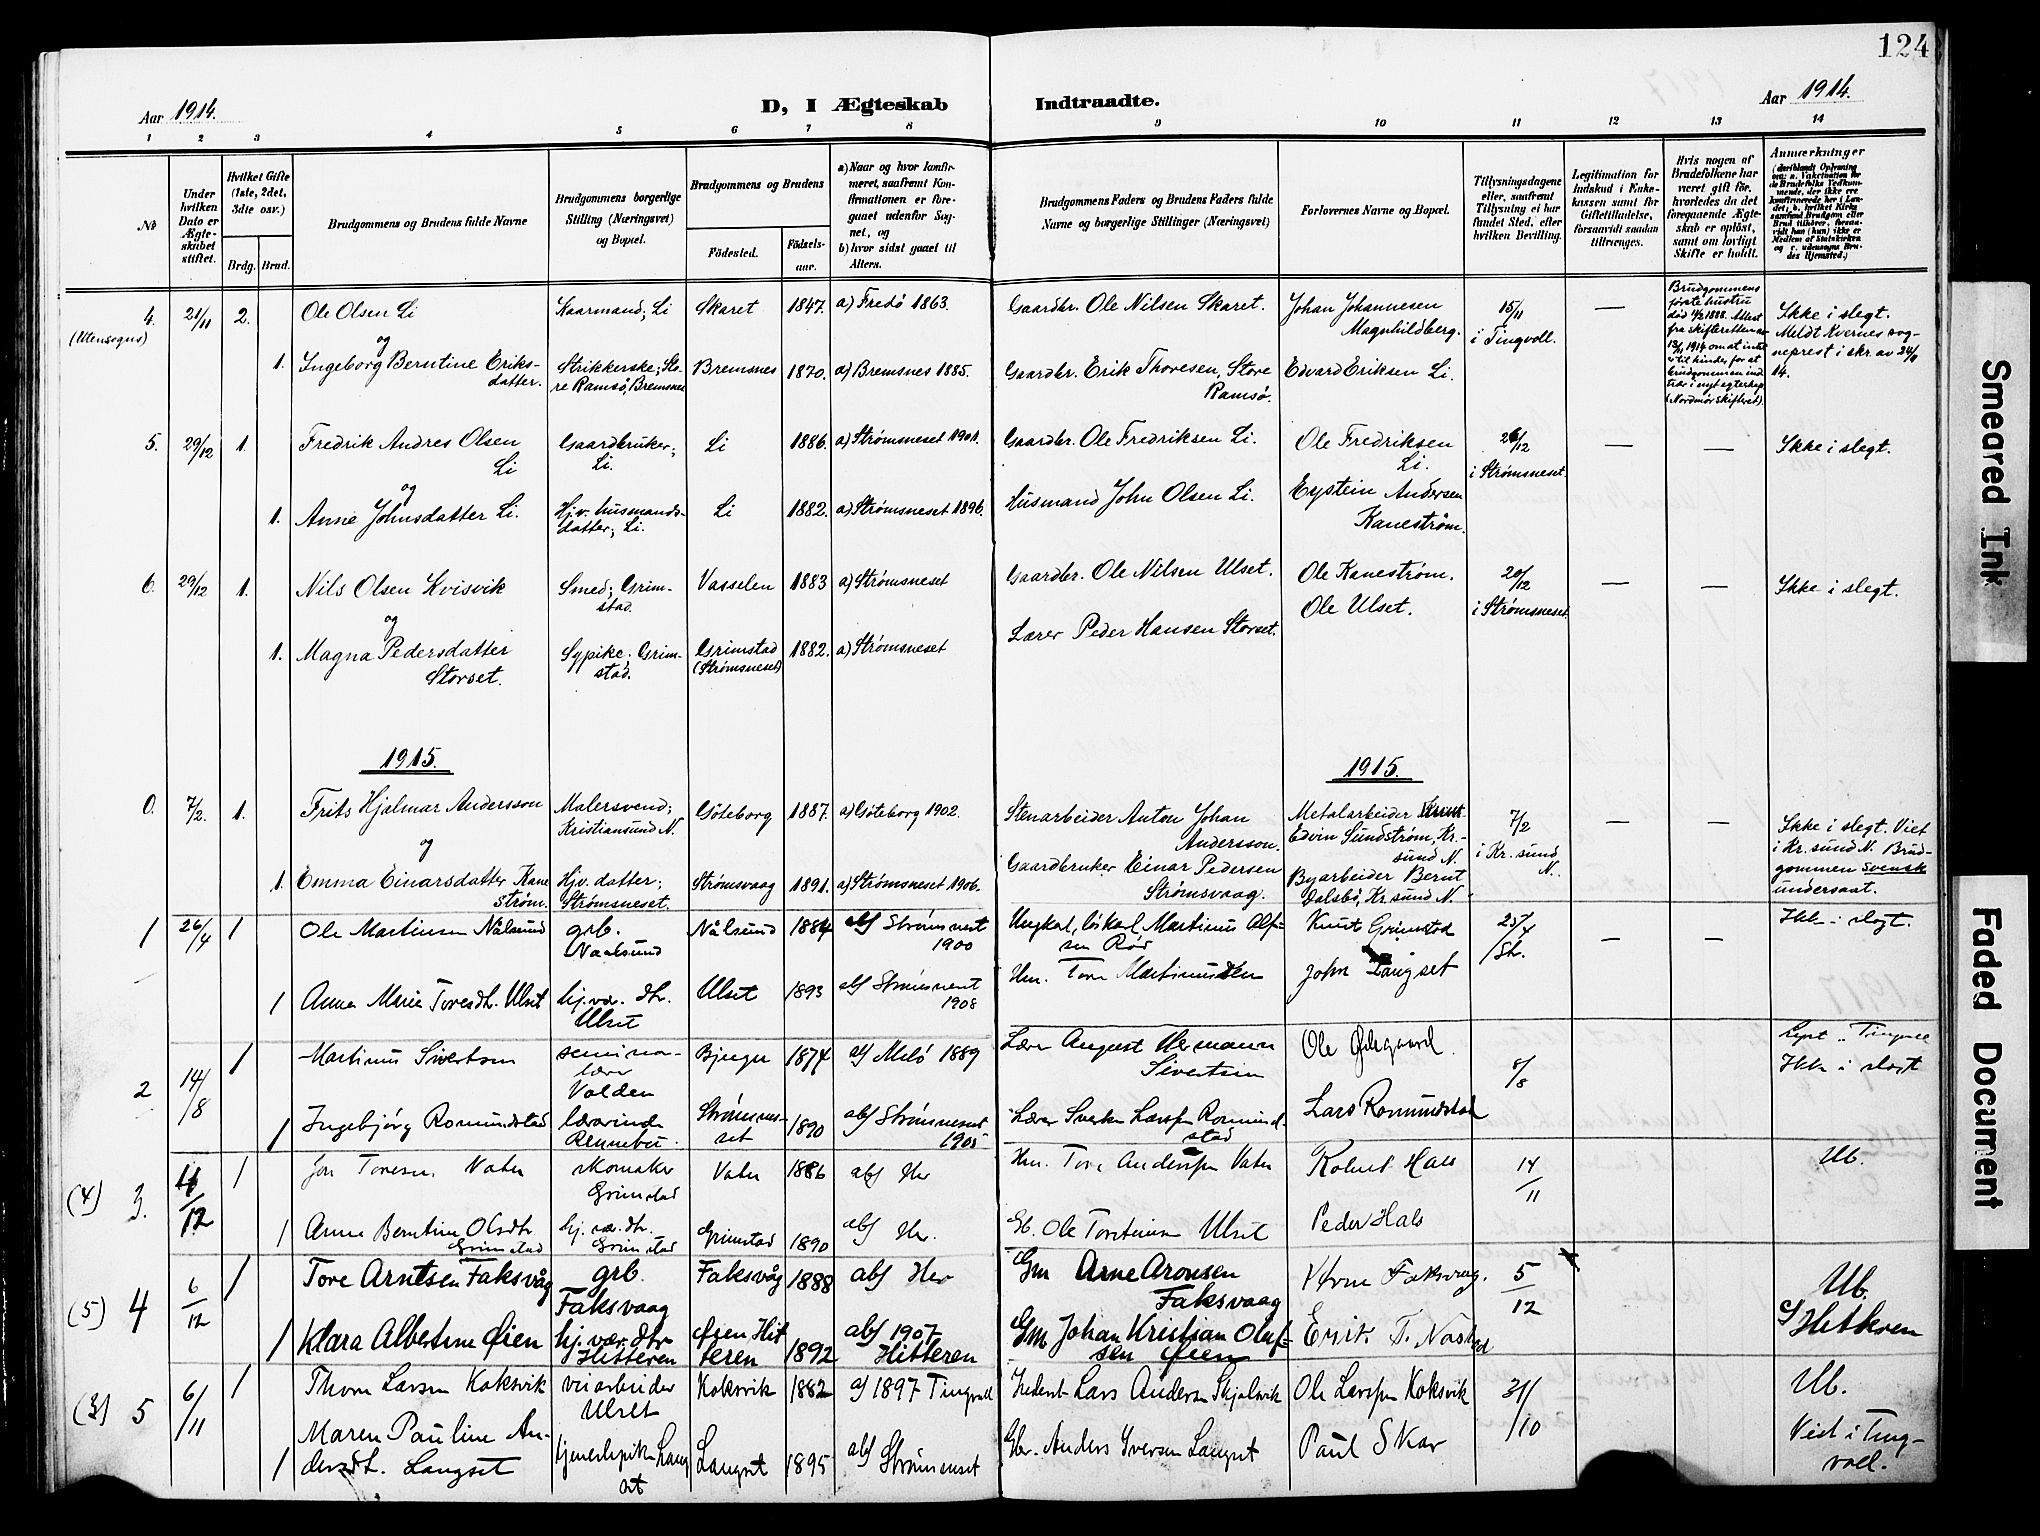 124
Aar 1914.
D, I Ægteskab Indtraadte.
Aar 1914.
1 2 3 4 5 6 7 8 9 10 11 12 13 14
No
Under hvilken Dato er Ægteskabet stiftet.
Hvilket Gifte (1ste, 2det, 3dte osv.)
Brdg. Brud.
Brudgommens og Brudens fulde Navne
Brudgommens borgerlige Stilling (Næringsvei) og Bopæl.
Brudgommens og Brudens
Fødested.
Fødselsaar.
a) Naar og hvor konfirmeret, saafremt Konfirmationen er foregaaet udenfor Sognet, og
b) hvor sidst gaaet til Alters.
Brudgommens Faders og Brudens Faders fulde Navne og borgerlige Stillinger (Næringsvei)
Forlovernes Navne og Bopæl.
Tillysningsdagene eller, saafremt Tillysning ei har fundet Sted, efter hvilken Bevilling.
Legitimation for Indskud i Enkekassen samt for Giftetilladelse, forsaavidt saadan tiltrænges.
Hvis nogen af Brudefolkene har været gift før, hvorledes da det foregaaende Ægteskab er opløst, samt om lovligt Skifte er holdt.
Anmærkninger
4. (Utensogns) 21/11 2. Ole Olsen Li Kaarmand; Li Skaret 1847. a) Fredø 1863. Gaardbr. Ole Nilsen Skaret. Johan Johannesen Magnhildberg. 15/11 i Tingvoll. — Brudgommens første hustru død 11/2 1888. Attest fra skifteretten av 13/11 1914 om at intet er til hinder for at brudgommen indtrær i nyt egteskap (Nordmør skifteret). Ikke i slegt. Meldt Kvernes sogneprest i skr. av 24/11 14.
og
1. Ingeborg Berntine Eriksdatter. Strikkerske; Store Ramsø, Bremsnes Bremsnes 1870. a) Bremsnes 1885. Gaardbr. Erik Thoresen, Store Ramsø. Edvard Eriksen Li.
5. 29/12 1. Fredrik Andres Olsen Li Gaardbruker; Li. Li 1886. a) Strømsneset 1901. Gaardbr. Ole Fredriksen Li. Ole Fredriksen Li. 26/12 i Strømsneset. — — Ikke i slegt.
og
1. Anne Johnsdatter Li. Hjv. husmandsdatter; Li. Li 1882. a) Strømsneset 1896. Husmand John Olsen Li. Eystein Andersen Kanestrøm.
6. 29/12 1. Nils Olsen Kvisvik Smed; Grimstad. Vasselen 1883 a) Strømsneset Gaardbr. Ole Nilsen Ulset. Ole Kanestrøm. 20/12 i Strømsneset. — — Ikke i slegt.
og
1. Magna Pedersdatter Storset. Sypike; Grimstad. Grimstad (Strømsneset) 1882. a) Strømsneset Lærer Peder Hansen Storset. Ole Ulset.
1915. 1915.
0. 7/2. 1. Frits Hjalmar Andersson Malersvend; Kristiansund N. Göteborg 1887. a) Göteborg 1902. Stenarbeider Anton Johan Andersson. Metalarbeider Edvin Sundstrøm, Kr.sund N. 7/2 i Kr. sund N. — — Ikke i slegt. Viet i Kr. sund N. Brudgommen svensk undersaat.
og
1. Emma Einarsdatter Kanestrøm. Hjv. datter; Strømsneset. Strømsvaag 1891. a) Strømsneset 1906. Gaardbruker Einar Pedersen Strømsvaag. Byarbeider Bernt Dalsbø, Kr.sund N.
1 26/4 1 Ole Martinsen Nålsund grb. Naalsund Nålsund 1884 abf Strømsneset 1900 Ungkarl, løskarl Martinus Olsen Rød Knut Grimstad 25/4 Str. — — Ikke i slegt.
1 Anna Marie Toresdt. Ulset hj.vær. dtr. Ulset Ulset 1893 abf Strømsneset 1908 Hm. Tore Martinussen John Langset
2 14/8 1 Martinus Sivertsen seminarlærer Volden Bjugn 1874 af Melö 1889 Lærer August Hermann Sivertsen Ole Ødegaard. 8/8 Lyst i Tingvoll Ikke i slegt
1 Ingebjørg Romundstad lærerinde Rennebu. Strømsneset 1890 abf Strømsneset 1905 Lærer Sverke Larsen Romundstad Lars Romundstad
(4) 3. 4/12 1 Jon Toresen Vater skomaker Grimstad Vater 1886 abf Her Hm. Tore Andersen Vater Robert Hals 14/11 Ub.
1 Anne Berntine Olsdtr. Grimstad hj. vær. dtr. Grimstad Grimstad 1890 abf Her. Gb. Ole Torstensen Ulset Peder Hals
(5) 4 6/12 1 Tore Arntsen Faksvåg grb. Faksvaag Faksvåg 1888 abf Her Gm Arne Aronsen Faksvaag Arne Faksvaag. 5/12 Ub. Hitteren
1 Klara Albertine Øien hj. vær. dtr Hitteren Øien Hitteren 1892 abf 1907 Hitteren Gm Johan Kristian Olufsen Øien Erik T. Nastad
(3) 5 6/11 1 Thore Larsen Koksvik veiarbeider Ulset Koksvik 1882 af 1897 Tingvoll Lars Andersen Skjølsvik Ole Larsen Koksvik 31/10 Ub. Viet i Tingvoll.
1 Maren Pauline Andersdt. Langset tjenestepike Langset Langset 1895 abf Strømsneset Gbr. Anders Iversen Langset Paul Skar
Smeared Ink
Faded Document